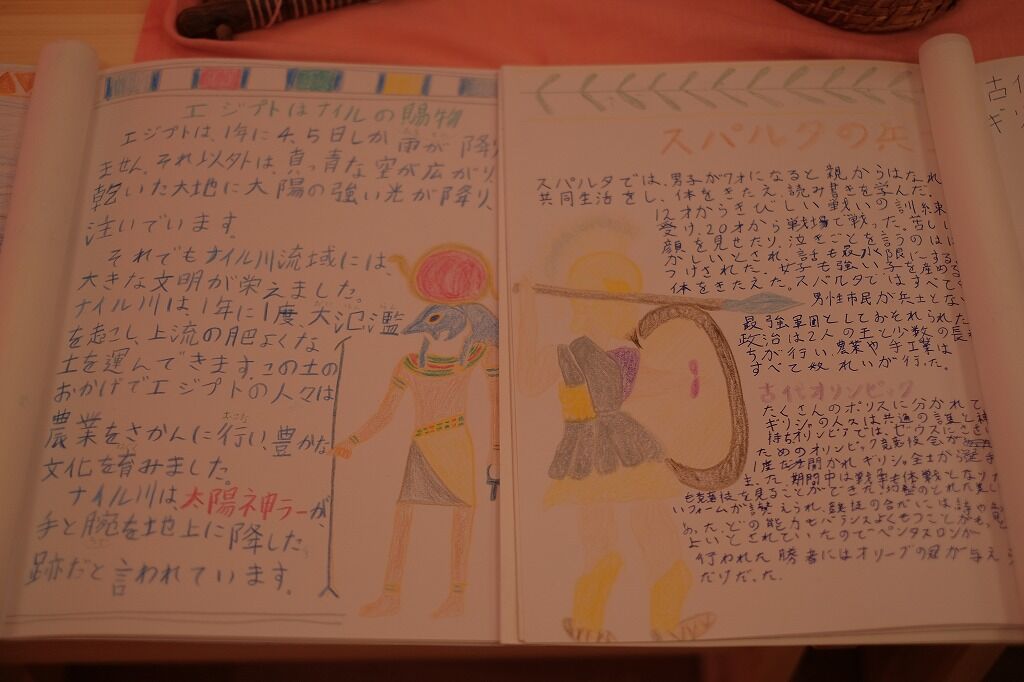 エジプトはナイルの賜物
エジプトは、1年に4、5日しか雨が降り
ません。それ以外は、真っ青な空が広がり、
乾いた大地に太陽の強い光が降り
注いでいます。
それでもナイル川流域には
大きな文明が栄えました。
ナイル川は、1年に1度、大氾濫
を起こし、上流の肥よくな
土を運んできます。この土の
おかげでエジプトの人々は
農業をさかんに行い、豊かな
文化を育みました。
ナイル川は、太陽神ラーが、
手と腕を地上に降した
跡だと言われています。
スパルタの兵
スパルタでは、男子が7才になると親からはなれ
共同生活をし、体をきたえ、読み書きを学んだ。
12才からきびしい戦いの訓練
受け、20才から戦場で戦った。苦し
顔を見せたり、泣きごとを言うのは
かしいとされ、話も最小限にする
つけされた。女子も強い子を産める
体をきたえた。スパルタではすべて
男性市民が兵士とな
最強軍団としておそれられた
政治は2人の王と少数の長
ちが行い、農業や手工業は
すべて奴れいが行った。
古代オリンピック
たくさんのポリスに分かれて
ギリシャの人々は共通の言葉と神
持ちオリンピアでは、ゼウスにささ
ためのオリンピック競技会が
1度開かれ ギリシャ全土から選手
また、期間中は戦争も休戦となり
も競技を見ることができた。均整のとれた美し
いフォームが讃えられ、競技の合い間には詩の
あった。どの能力もバランスよくもつことがも
よいとされていたのでペンタスロンが
行われた 勝者にはオリーブの冠が与え
だけだった。
古
ギリ